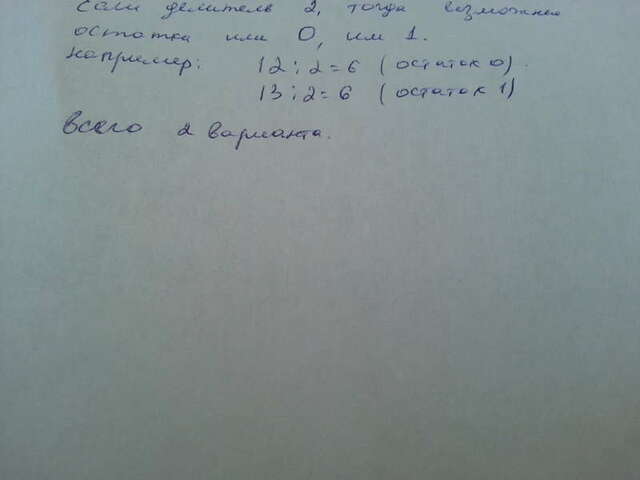 Если делитель 2, тогда возможных
остатка или 0, или 1.
Например: 12:2=6 (остаток 0).
13:2=6 (остаток 1)
Всего 2 варианта.